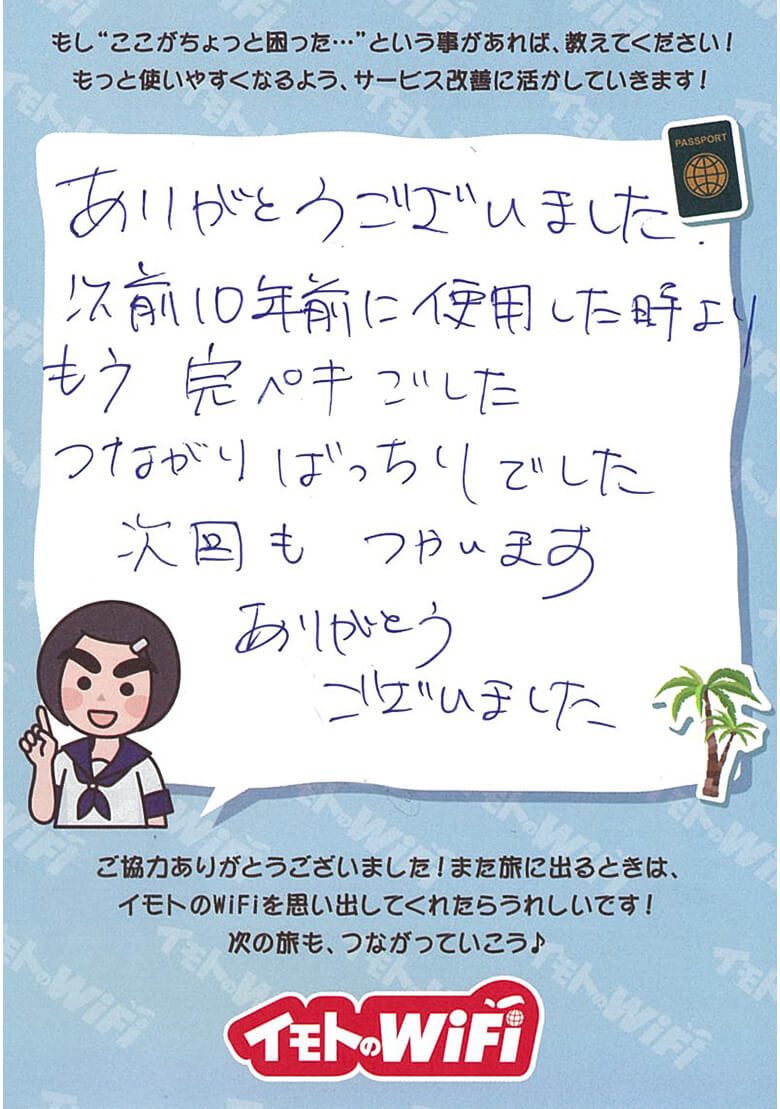 もし“ここがちょっと困った…”という事があれば、教えてください！
もっと使いやすくなるよう、サービス改善に活かしていきます！
PASSPORT
ありがとうございました.
次前10年前に使用した時より
もう 完ペキごした
つながりばっちりでした
次回も つかいます
ありがとう
ございました
ご協力ありがとうございました！また旅に出るときは、
イモトのWiFiを思い出してくれたらうれしいです！
次の旅も、つながっていこう♪
イモトのWiFi